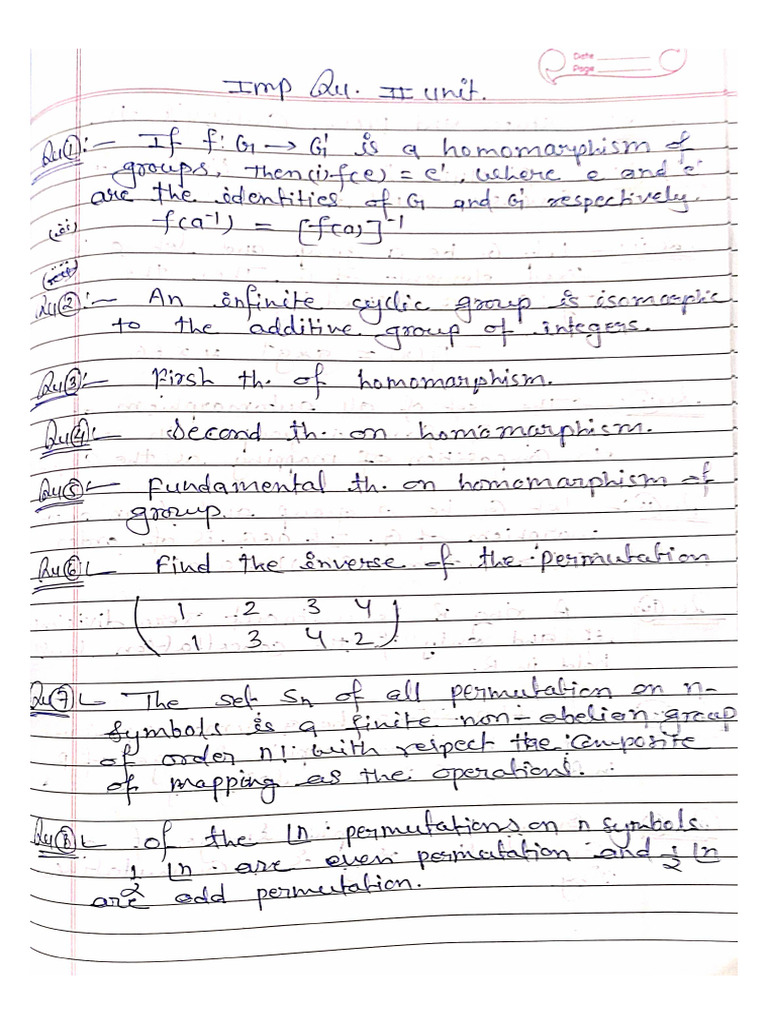 Date
Page
Imp Qu. II unit.
Qu(1):- If f: G → G' is a homomarphism of
groups, then(i) f(e) = e', where e and e'
are the identities of G and G' respectively.
(ii) f(a⁻¹) = [f(a)]⁻¹
Qu(2):- An infinite cyclic group is isomorphic
to the additive group of integers.
Qu(3):- Firsh th. of homomarphism.
Qu(4):- Second th. on homomarphism.
Qu(5):- Fundamental th. on homomarphism of
group.
Qu(6):- Find the inverse of the permutation
( 1 2 3 4
1 3 4 2 ).
Qu(7):- The set Sn of all permutation on n-
symbols is a finite non-abelian group
of order n! with respect the composite
of mapping as the operations.
Qu(8):- of the Ln permutations on n symbols
1/2 Ln are even permutation and 1/2 Ln
are odd permutation.